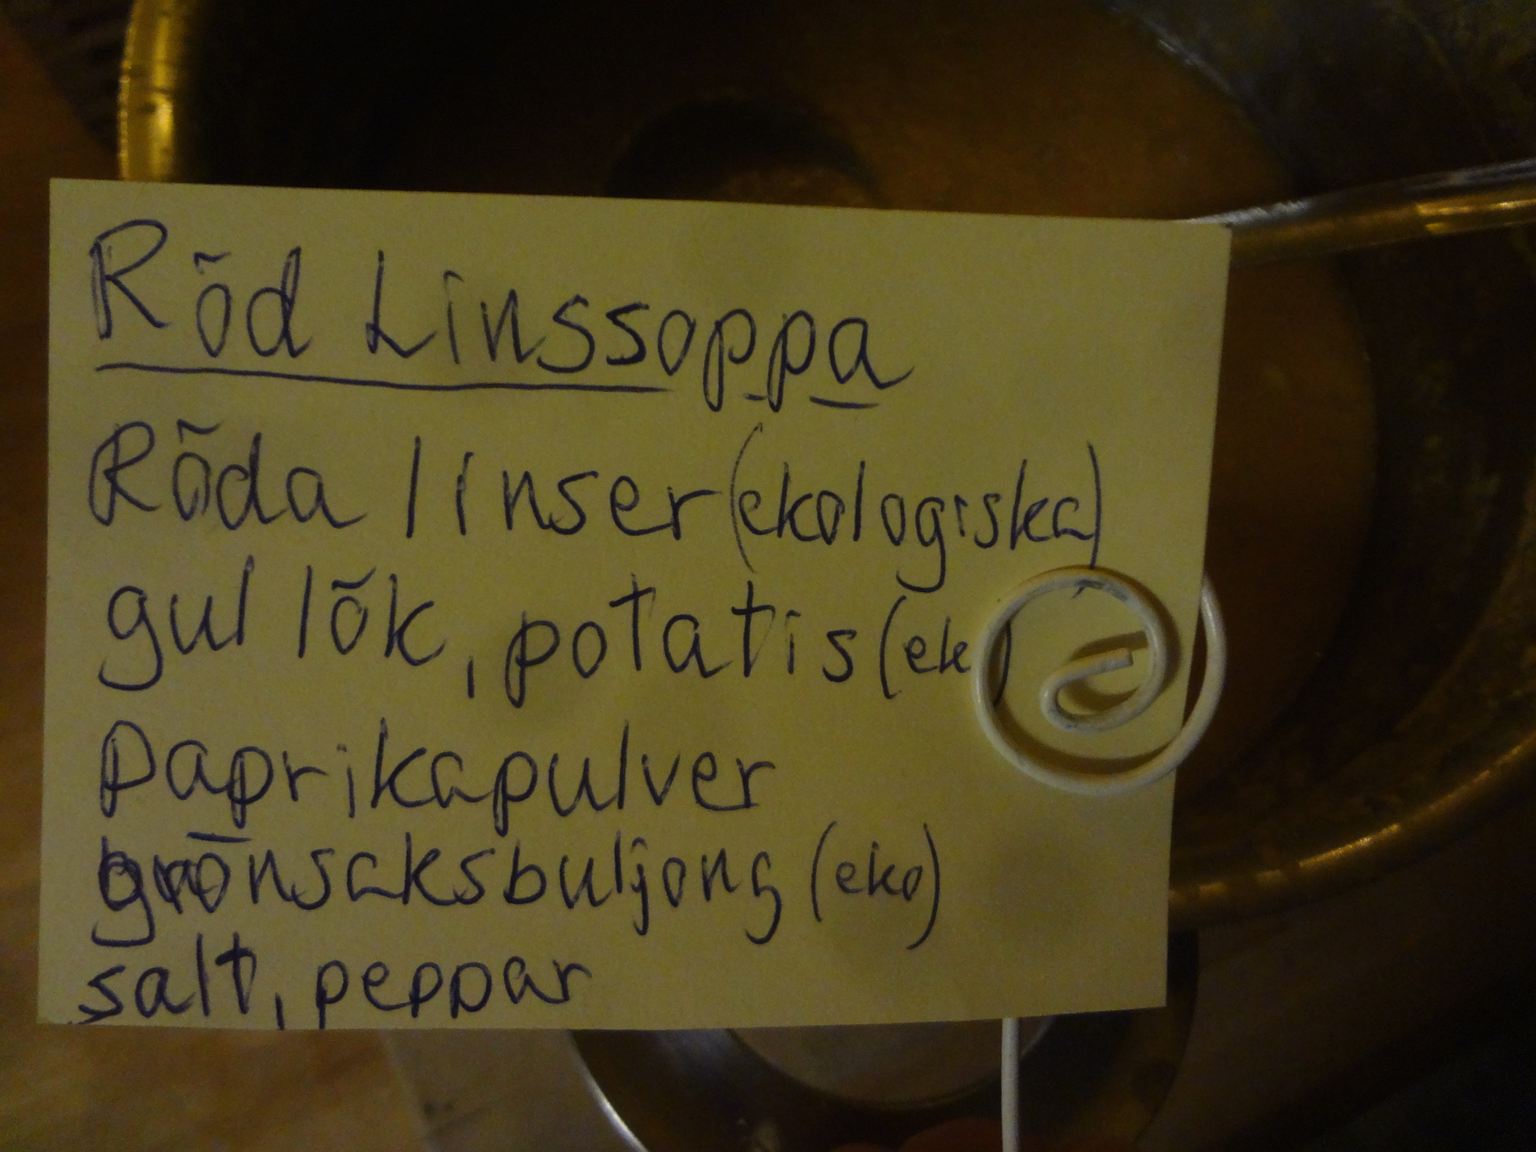 Röd Linssoppa
Röda linser (ekologiska)
gul lök, potatis (eko)
Paprikapulver
grönsaksbuljong (eko)
salt, peppar